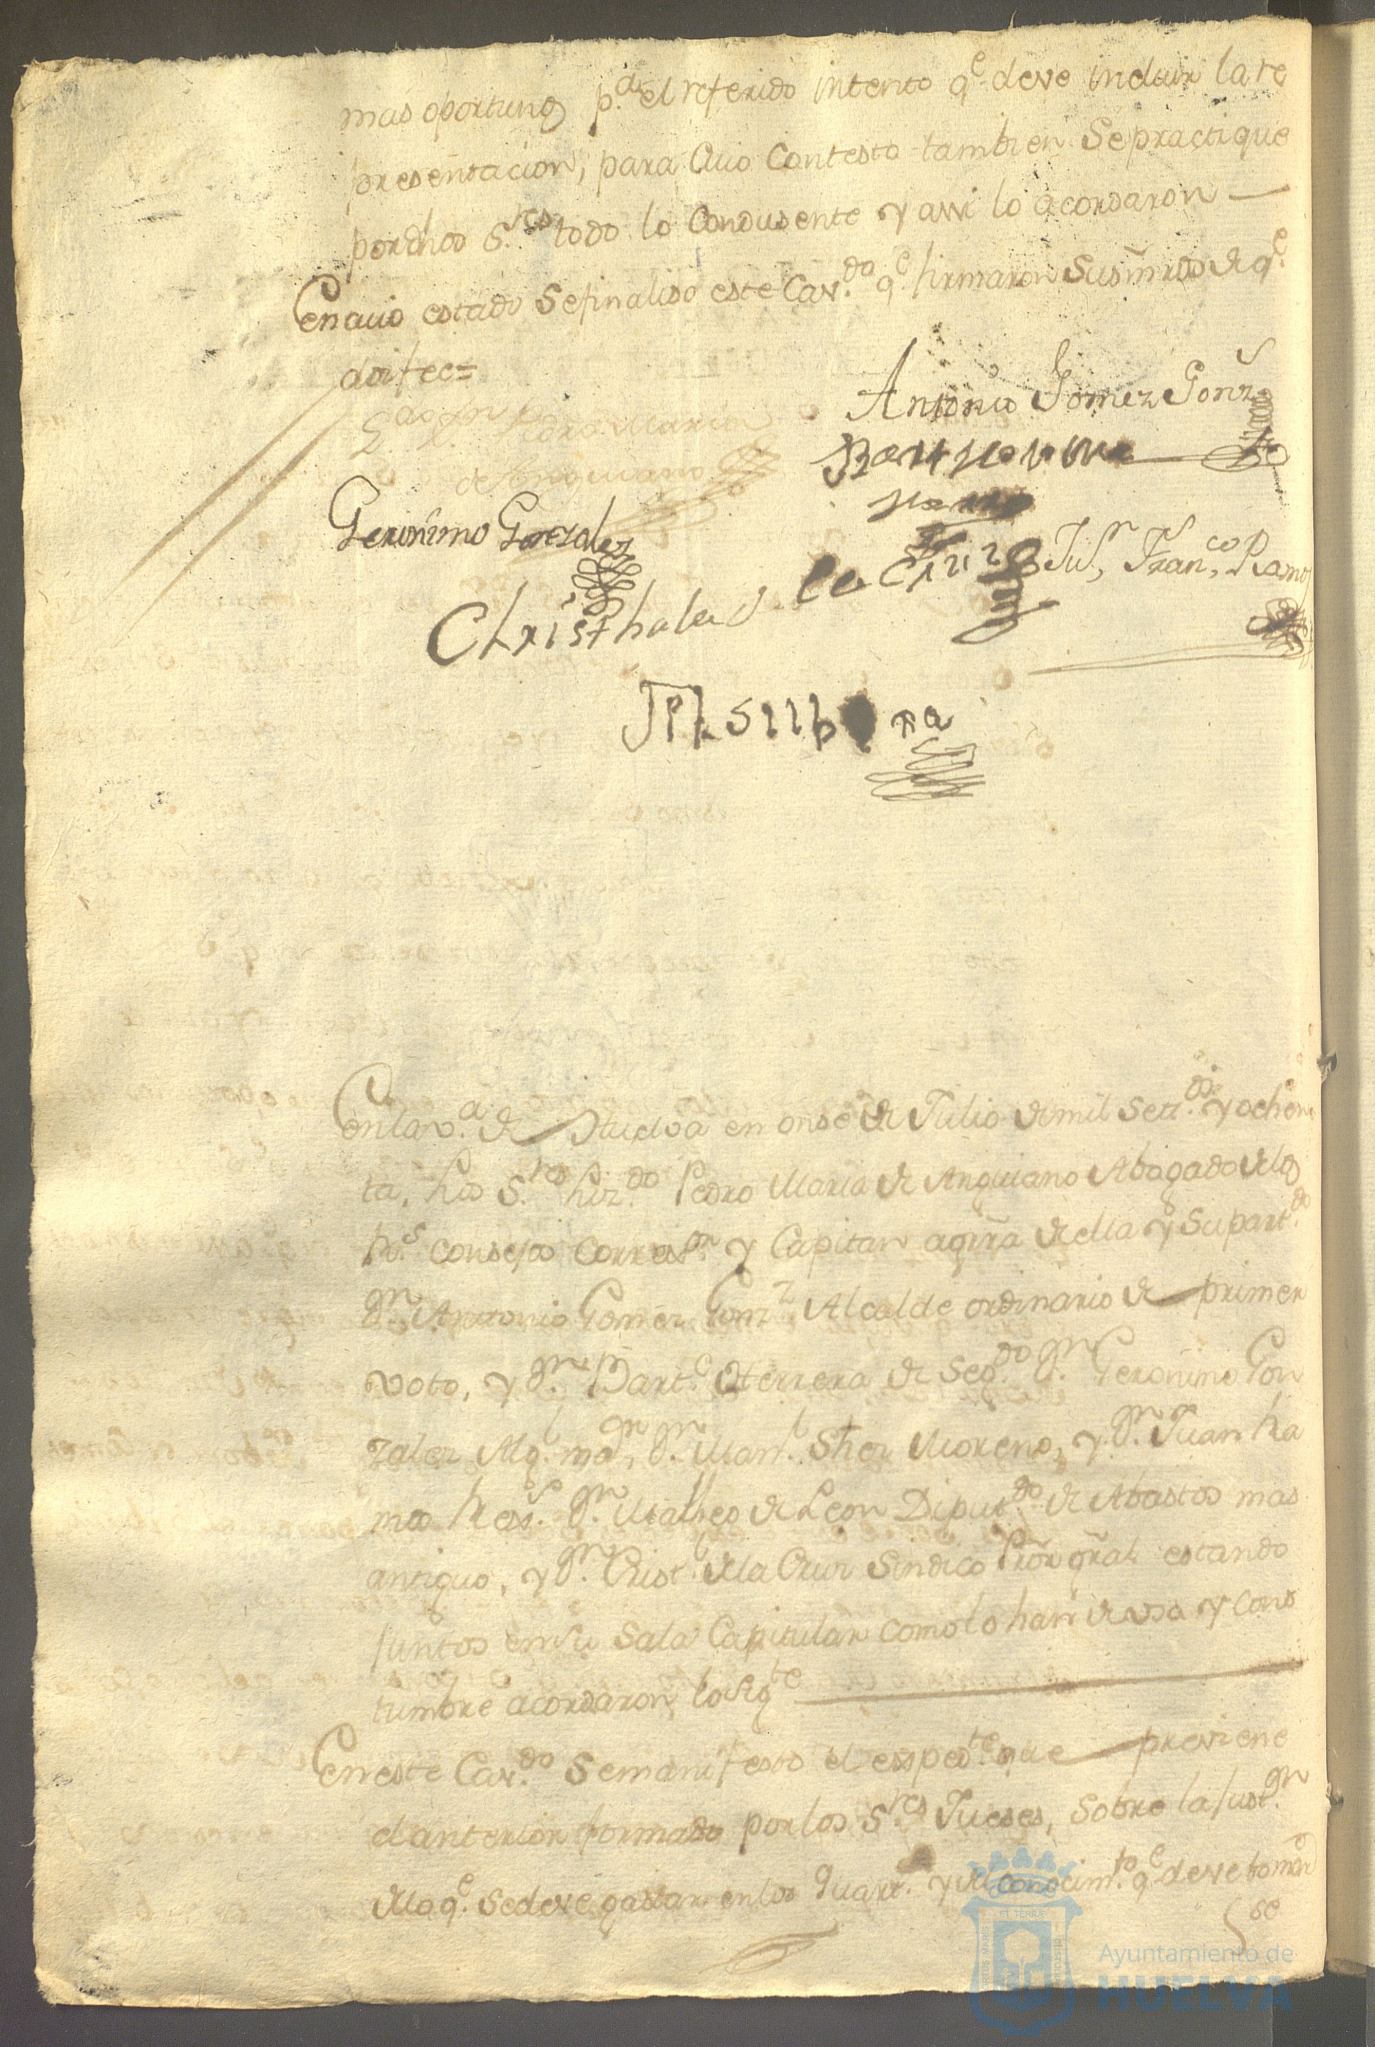 mas oportuno p.ª el referido intento q.e deve incluir la re
presentacion, para cuio contesto tambien se practique
por dhos S.res todo lo condusente y assi lo acordaron
En cuio estado se finaliso este Cav.do q.e firmaron sus mrds de q.e
doi fee=
Antonio Gomez Gonz
Lizdo Dn Pedro Maria
de Anguiano
Bartholome
Herrera
Geronimo Gonzalez
Christhobal d la Cruz
Juº Franco Ramos
Silb ra
En la v.ª de Huelva en onse de Julio de mil set.os y ochen
ta, los S.res Liz.do Pedro Maria de Anguiano Abogado de los
Rs. Consejos Correg.or y Capitan a grra de ella y su part.do
Dn Antonio Gomez Gonz Alcalde ordinario de primer
voto, y Dn Bart.e Herrera de seg.do Dn Geronimo Gon
zalez Alg.l mor, Dn Man.l Shez Moreno, y Dn Juan Ra
mos Dn Matheo de Leon Diput.do de Abastos mas
antiguo, y Dn Crist.l de la Cruz Sindico Pror gral estando
juntos en su Sala Capitular como lo han de uso y cos
tumbre acordaron lo sig.te
En este Cav.do se manifesto el exped.te que previene
el anterior formado por los S.res Jueses, sobre la just.on
de la q.e se deve gastar en los quart.s y de conocim.to q.e deve tomar
se
Ayuntamiento de
HUELVA